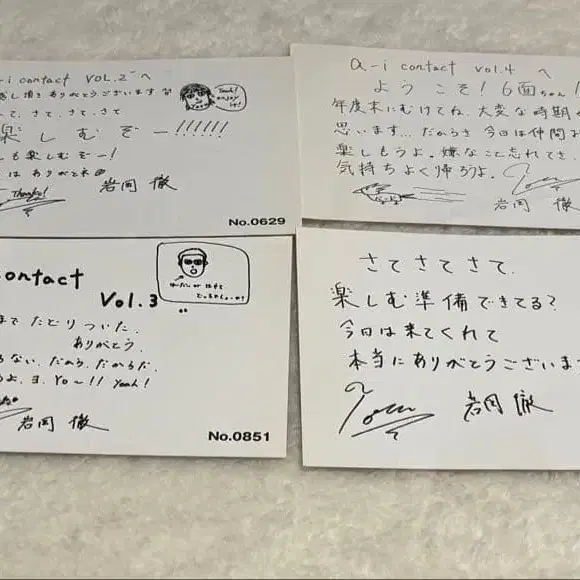 -i contact VOL.2 へ
し頂きありがとうございます
て、さて、さて、さて
Yeah! enjoy
楽しむぞー!!!!!!
も楽しむぞー!
は ありがとね
Thanks!
岩岡 徹
No.0629
a-i contact vol.4 へ
ようこそ! 6面ちゃん!
年度末にむけてね、大変な時期
思います...だからさ 今日は仲間
楽しもうよ。嫌なこと忘れてさ、
気持ちよく帰ろうよ。
岩岡 徹
contact
Vol.3
まで たどりついた。
ありがとう。
ない、だめろ、だからだ。
よ、ヨ、Yo~!! Yeah!
岩岡 徹
No.0851
さて さて さて、
楽しむ準備できてる?
今日は来てくれて
本当にありがとうございま
Toru
岩岡 徹